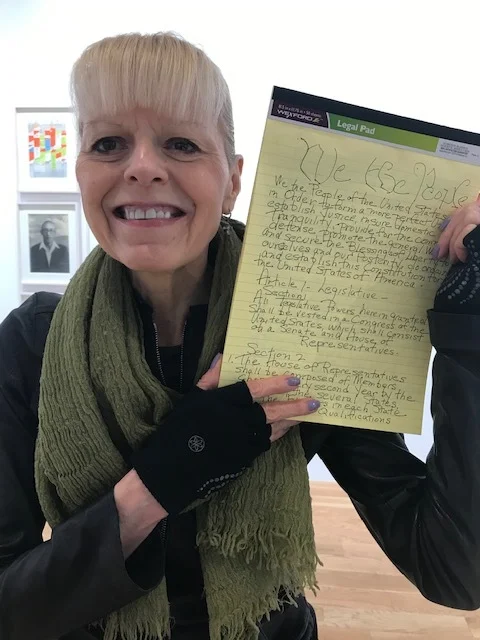 WESTCIRCLE
Legal Pad
We the People
We the People of the United States
in Order to form a more perfect
establish Justice, insure domestic
Tranquility, Provide for the common
defense, Promote the general
and secure the Blessings of Liberty
ourselves and our Posterity, do ordain
and establish this Constitution for
the United States of America-
Article 1- Legislative-
Section 1
All legislative Powers herein granted
shall be vested in a Congress of the
United States, which shall consist
of a Senate and House of
Representatives.
Section 2
1. The House of Representatives
shall be composed of Members
second year by the
several States
in each State
Qualifications